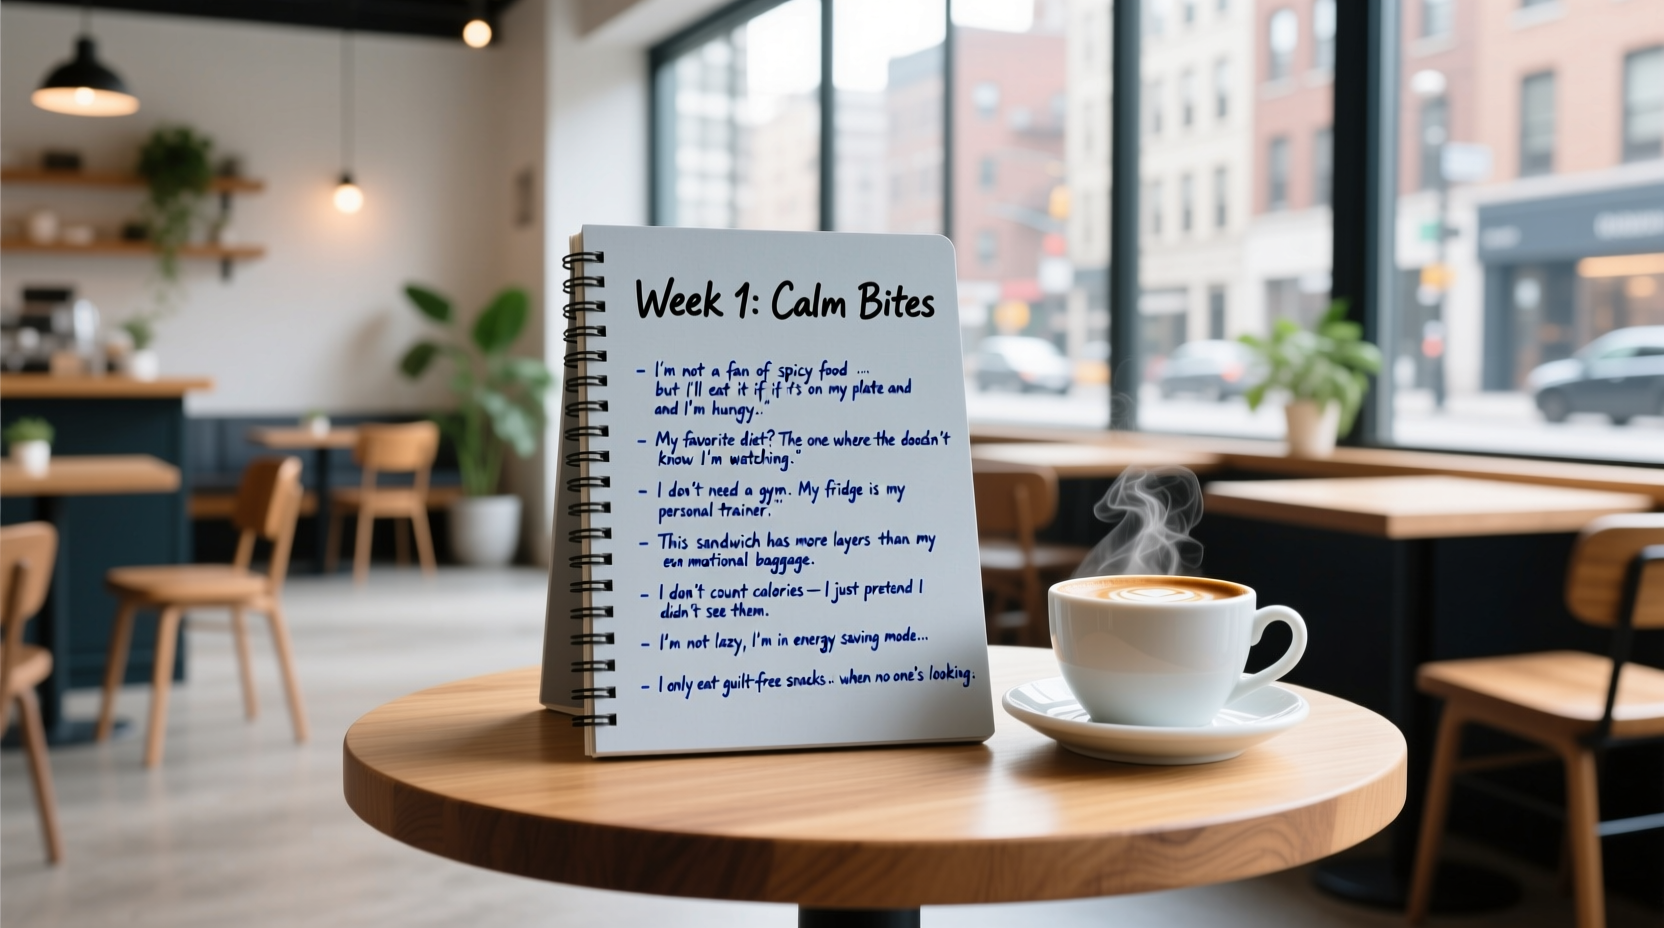 Week 1: Calm Bites
– I'm not a fan of spicy food ....
but I'll eat it if if it's on my plate and
and I'm hungy.."
– My favorite diet? The one where the doodn't
know I'm watching."
– I don't need a gym. My fridge is my
personal trainer."
– This sandwich has more layers than my
baggage.
– I don't count calories — I just pretend I
didn't see them.
– I'm not lazy, I'm in energy saving mode...
– I only eat guilt-free snacks.. when no one's looking.